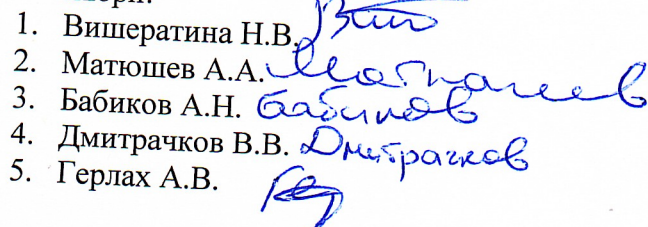 1. Вишератина Н.В.
2. Матюшев А.А. Матюшев
3. Бабиков А.Н. Бабиков
4. Дмитрачков В.В. Дмитрачков
5. Герлах А.В.